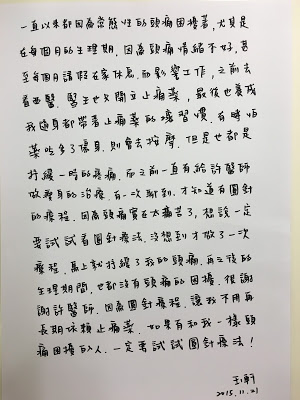 一直以來都因為常態性的頭痛困擾著,尤其是
在每個月的生理期。因為頭痛情緒不好,甚
至每個月請假在家休息。而影響工作,之前去
看西醫。醫生也只開立止痛藥,最後也養成
我隨身都帶著止痛藥的壞習慣。有時怕
藥吃多了傷身。則會去按摩。但是也都是
紓緩一時的疼痛。而之前一直有給許醫師
做瘦身的治療。有一次聊到。才知道有圓針
的療程。因為頭痛實在太痛苦了,想說一定
要試試看圓針療法。沒想到才做了一次
療程。馬上就紓緩了我的頭痛。再之後的
生理期間,也都沒有頭痛的困擾。很謝
謝許醫師。因為圓針療程。讓我不用再
長期依賴止痛藥。如果有和我一樣頭
痛困擾的人。一定要試試圓針療法!
2015.11.21